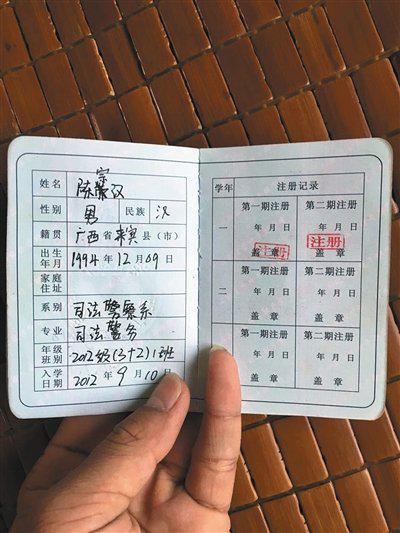 姓名 陈宗汉
性别 男 民族 汉
籍贯 广西省来宾县(市)
出生
年月 1994.12月09日
家庭
住址
系别 司法警察系
专业 司法警务
年级
班别 2012级(3+2)1班
入学
日期 2012年9月10日
学年 注册记录
一 第一期注册 第二期注册
年 月 日 年 月 日
注册 注册
盖 章 盖 章
二 第一期注册 第二期注册
年 月 日 年 月 日
盖 章 盖 章
第一期注册 第二期注册
年 月 日 年 月 日
盖 章 盖 章